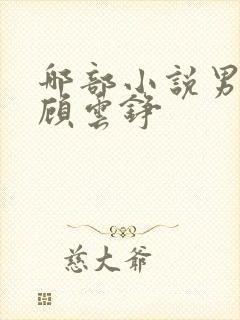 那部小説男
顧雲錚
慈大爺